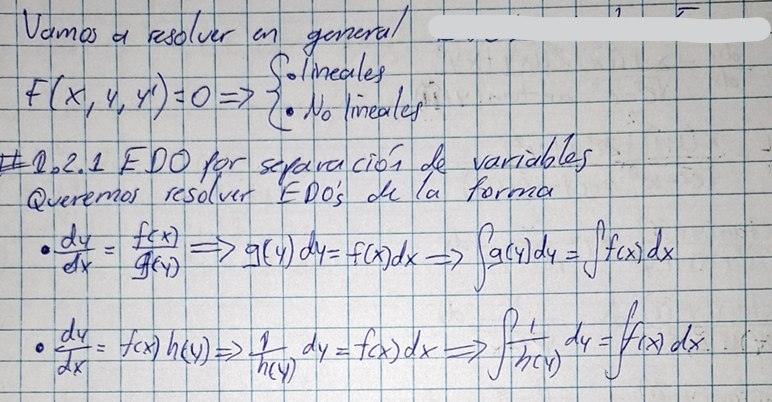 Vamos a resolver en general
F(x, y, y') = 0 => { • lineales
• No lineales
# 1.2.1 EDO por separación de variables
Queremos resolver EDO's de la forma
• dy/dx = f(x)/g(y) => g(y) dy = f(x) dx => ∫g(y) dy = ∫f(x) dx
• dy/dx = f(x) h(y) => 1/h(y) dy = f(x) dx => ∫ 1/h(y) dy = ∫f(x) dx